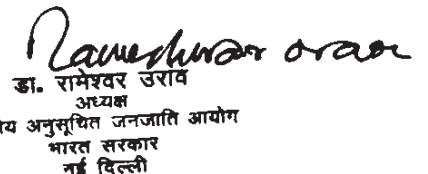 Rameshwar Oraon
डा. रामेश्वर उराव
अध्यक्ष
य अनुसूचित जनजाति आयोग
भारत सरकार
नई दिल्ली